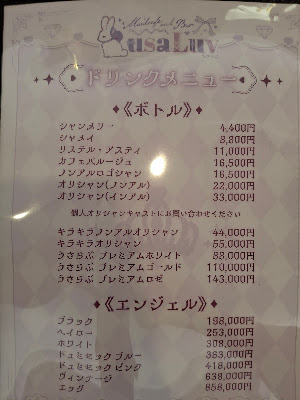 Maidcafe and Bar
UsaLuv
ドリンクメニュー
《ボトル》
シャンメリー 4,400円
シャメイ 8,800円
リステル・アスティ 11,000円
カフェパルージュ 16,500円
ノンアルロゴシャン 16,500円
オリシャン(ノンアル) 22,000円
オリシャン(インアル) 33,000円
個人オリシャンキャストにお問い合わせください
キラキラノンアルオリシャン 44,000円
キラキラオリシャン 55,000円
うさらぶ プレミアムホワイト 88,000円
うさらぶ プレミアムゴールド 110,000円
うさらぶ プレミアムロゼ 143,000円
《エンジェル》
ブラック 198,000円
ヘイロー 253,000円
ホワイト 308,000円
ドゥミセック ブルー 363,000円
ドゥミセック ピンク 418,000円
ヴィンテージ 638,000円
エッグ 858,000円